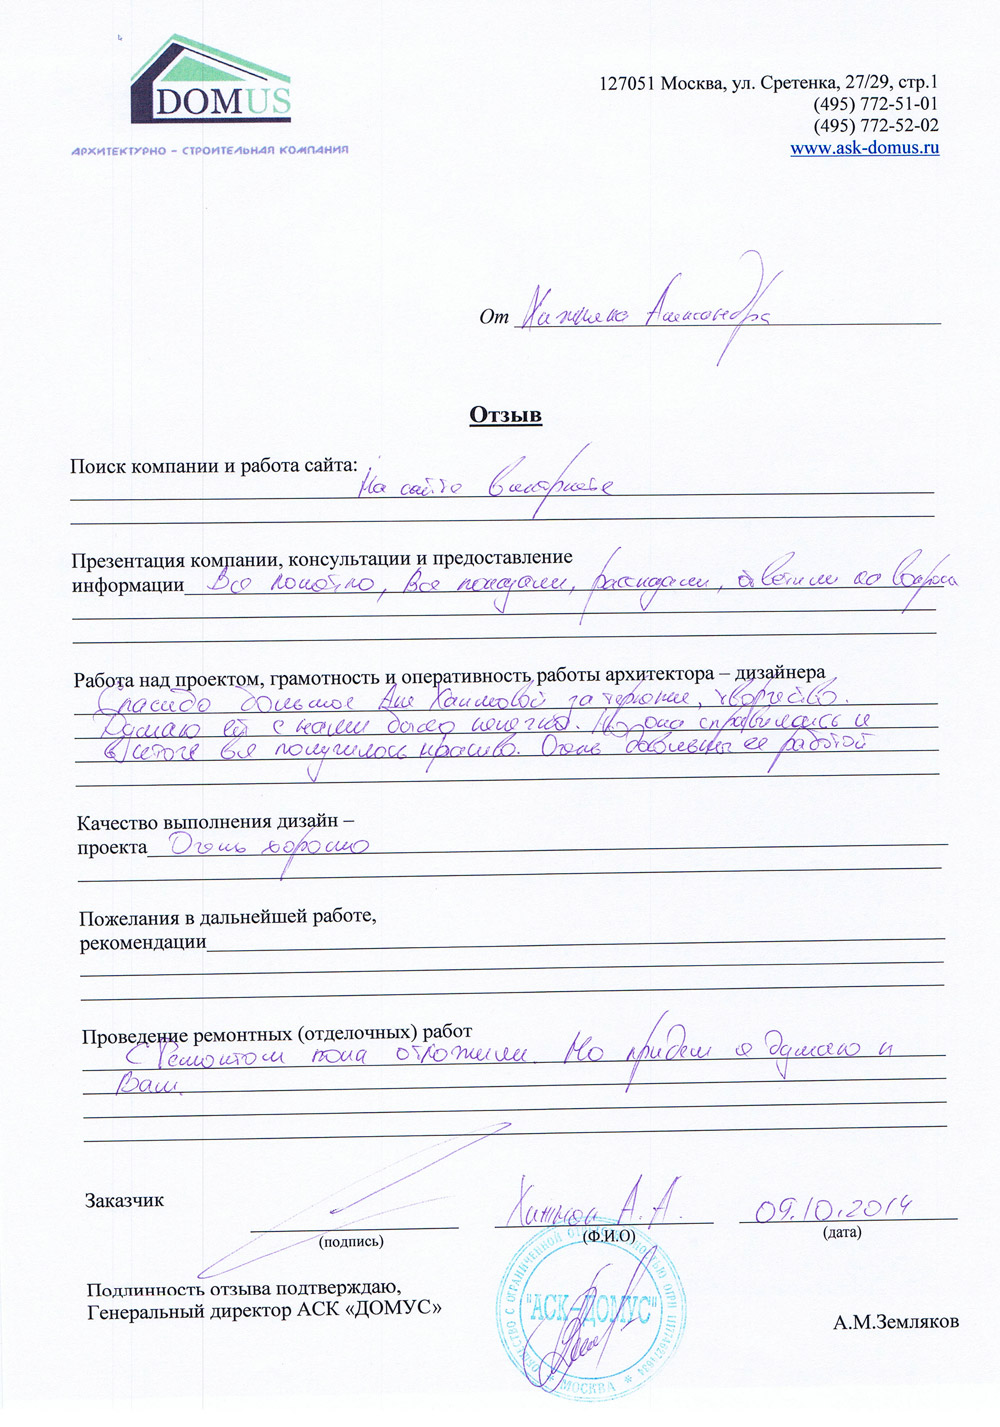 DOMUS
АРХИТЕКТУРНО – СТРОИТЕЛЬНАЯ КОМПАНИЯ
127051 Москва, ул. Сретенка, 27/29, стр.1
(495) 772-51-01
(495) 772-52-02
www.ask-domus.ru
От Александра
Отзыв
Поиск компании и работа сайта:
На сайте в интернете
Презентация компании, консультации и предоставление
информации Все понятно, Все показали, рассказали, ответили на вопросы
Работа над проектом, грамотность и оперативность работы архитектора – дизайнера
Спасибо большое Ане за терпение, творчество.
Думаю ей с нами было нелегко. Но она справилась и
в итоге все получилось красиво. Очень довольны ее работой
Качество выполнения дизайн –
проекта Очень хорошо
Пожелания в дальнейшей работе,
рекомендации
Проведение ремонтных (отделочных) работ
С Ремонтом пока отложили. Но придем я думаю к
Вам.
Заказчик
А.А. 09.10.2014
(подпись) (Ф.И.О) (дата)
Подлинность отзыва подтверждаю,
Генеральный директор АСК «ДОМУС»
А.М.Земляков
"АСК-ДОМУС"
МОСКВА